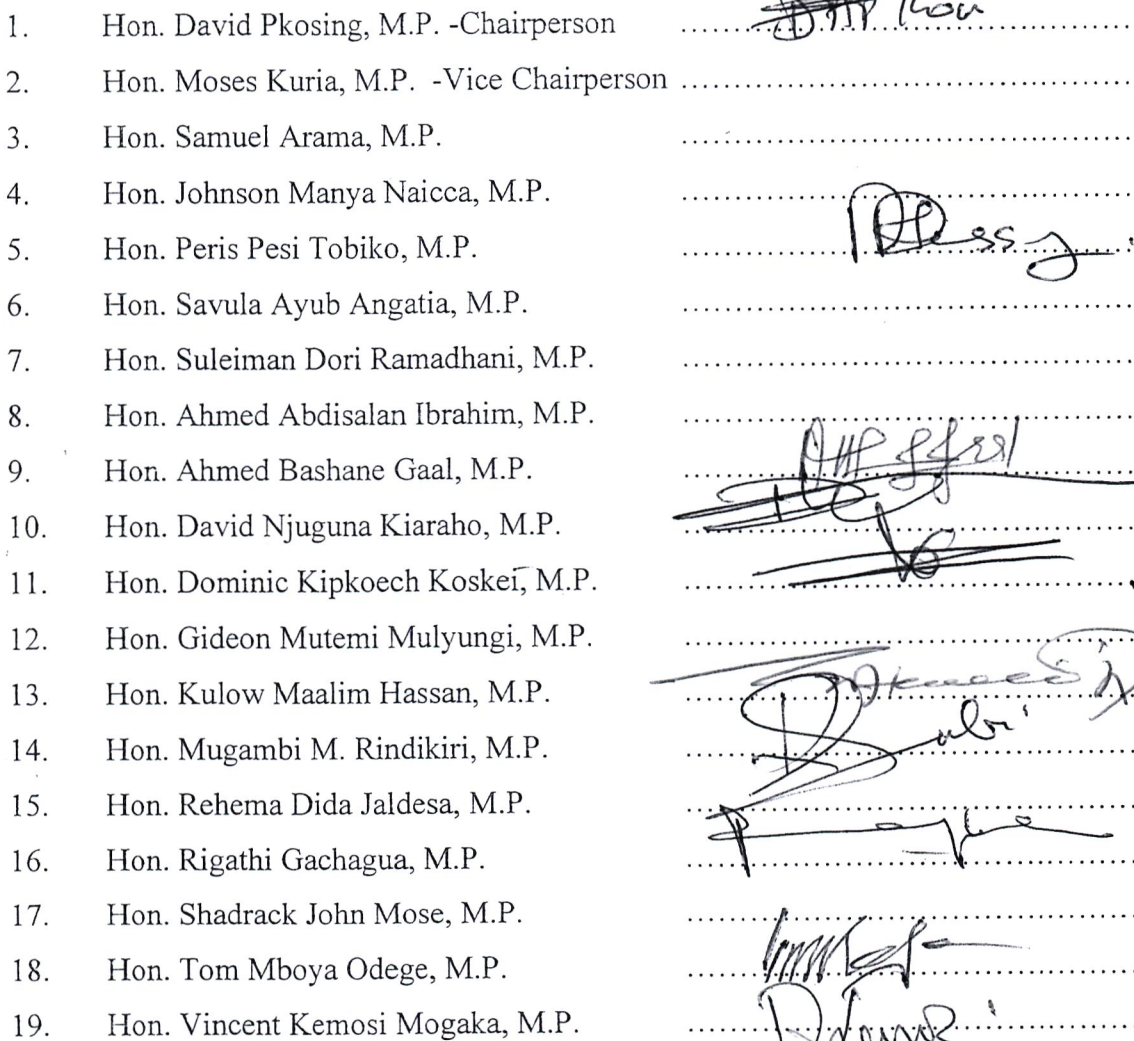 1. Hon. David Pkosing, M.P. -Chairperson ..............................
2. Hon. Moses Kuria, M.P. -Vice Chairperson ..............................
3. Hon. Samuel Arama, M.P. ..............................
4. Hon. Johnson Manya Naicca, M.P. ..............................
5. Hon. Peris Pesi Tobiko, M.P. ..............................
6. Hon. Savula Ayub Angatia, M.P. ..............................
7. Hon. Suleiman Dori Ramadhani, M.P. ..............................
8. Hon. Ahmed Abdisalan Ibrahim, M.P. ..............................
9. Hon. Ahmed Bashane Gaal, M.P. ..............................
10. Hon. David Njuguna Kiaraho, M.P. ..............................
11. Hon. Dominic Kipkoech Koskei, M.P. ..............................
12. Hon. Gideon Mutemi Mulyungi, M.P. ..............................
13. Hon. Kulow Maalim Hassan, M.P. ..............................
14. Hon. Mugambi M. Rindikiri, M.P. ..............................
15. Hon. Rehema Dida Jaldesa, M.P. ..............................
16. Hon. Rigathi Gachagua, M.P. ..............................
17. Hon. Shadrack John Mose, M.P. ..............................
18. Hon. Tom Mboya Odege, M.P. ..............................
19. Hon. Vincent Kemosi Mogaka, M.P. ..............................